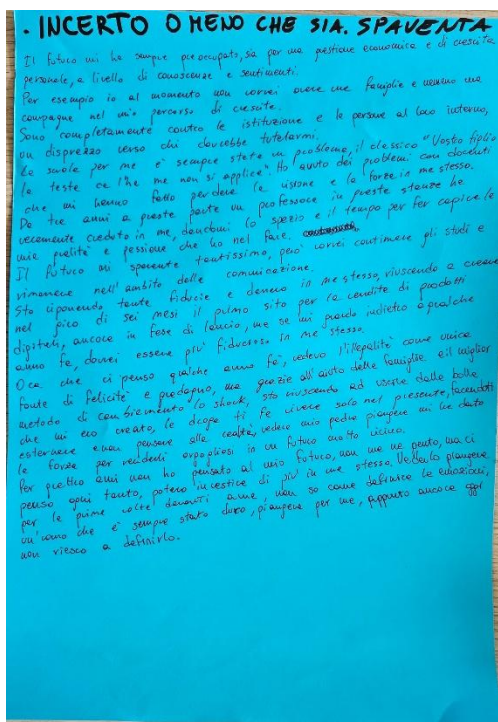 . INCERTO O MENO CHE SIA. SPAVENTA
Il futuro mi ha sempre preoccupato, sia per una gestione economica e di crescita
personale, a livello di conoscenze e sentimenti.
Per esempio io al momento non vorrei avere una famiglia e nemmeno una
compagna nel mio percorso di crescita.
Sono completamente contro le istituzione e le persone al loro interno,
un disprezzo verso chi dovrebbe tutelarmi.
La scuola per me è sempre stata un problema, il classico "Vostro figlio
la testa ce l'ha ma non si applica". Ho avuto dei problemi con docenti
che mi hanno fatto perdere la visione e la forza in me stesso.
Da tre anni a questa parte un professore in queste stanze ha
veramente creduto in me, dandomi lo spazio e il tempo per far capire le
mie qualità e passione che ho nel fare.
Il futuro mi spaventa tantissimo, però vorrei continuare gli studi e
rimanere nell'ambito della comunicazione.
Sto riponendo tanta fiducia e denaro in me stesso, riuscendo a creare
nel giro di sei mesi il primo sito per la vendita di prodotti
digitali, ancora in fase di lancio, ma se mi guardo indietro a qualche
anno fa, dovrei essere più fiducioso in me stesso.
Ora che ci penso qualche anno fa, vedevo l'illegalità come unica
fonte di felicità e guadagno, ma grazie all'aiuto della famiglia e il miglior
metodo di cambiamento lo shock, sto riuscendo ad uscire dalla bolla
che mi ero creato, la droga ti fa vivere solo nel presente, facendoti
esternare e non pensare alla realtà, vedere mio padre piangere mi ha dato
la forza per renderli orgogliosi in un futuro molto vicino.
Per quattro anni non ho pensato al mio futuro, non me ne pento, ma ci
penso ogni tanto, potevo investire di più in me stesso. Vederlo piangere
per la prima volta davanti a me, non so come definire le emozioni,
un'uomo che è sempre stato duro, piangere per me, appunto ancora oggi
non riesco a definirlo.